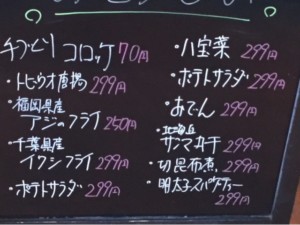 手づくりコロッケ70円
・トビウオ唐揚299円
・福岡県産
アジのフライ250円
・千葉県産
イワシフライ299円
・ポテトサラダ299円
・八宝菜299円
・ポテトサラダ299円
・おでん299円
・北海道
サンマ丸干299円
・切昆布煮299円
・明太子スパゲティー
299円